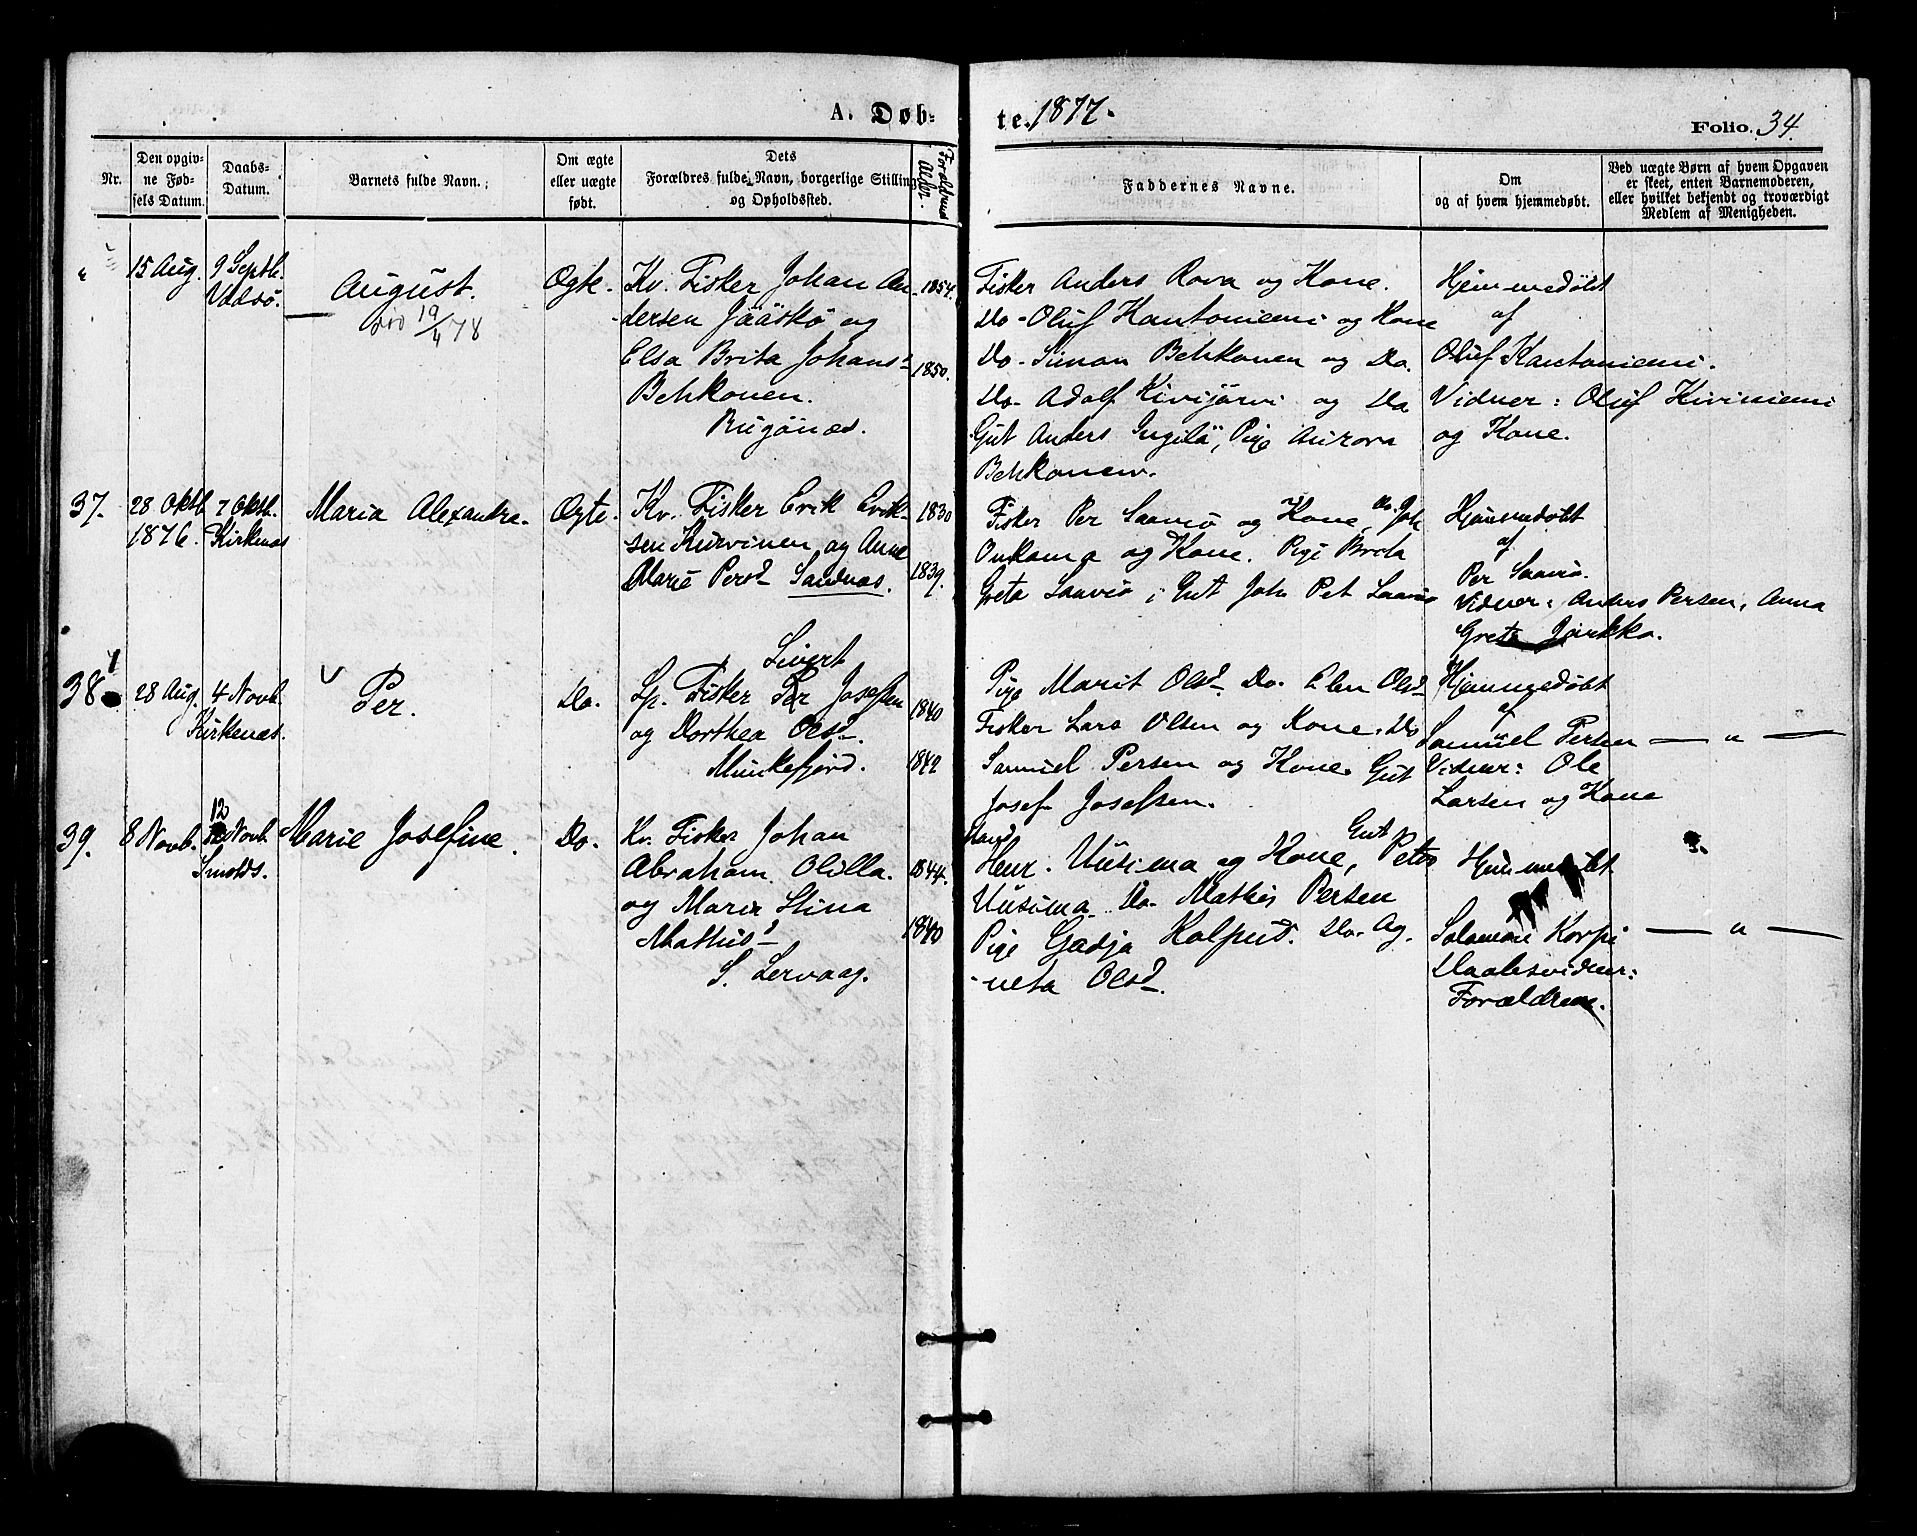 A. Døb-
te. 1877.
Folio. 34
Nr.
Den opgiv-
ne Fød-
sels Datum.
Daabs-
Datum.
Barnets fulde Navn.
Om ægte
eller uægte
født.
Dets
Forældres fulde Navn, borgerlige Stilling
og Opholdssted.
Forældrenes
Alder.
Faddernes Navne.
Om
og af hvem hjemmedøbt.
Ved uægte Børn af hvem Opgaven
er skeet, enten Barnemoderen,
eller hvilket bekjendt og troværdigt
Medlem af Menigheden.
"
15 Aug.
9 Septb.
Vadsö.
August.
död 19/4 78
Ægte.
Kv. Fisker Johan An-
dersen Jääskö og
Elsa Brita Johansd
Behkonen.
Bugönæs.
1854.
1850.
Fisker Anders Rova og Kone.
Do - Oluf Kantoniemi og Kone
Do - Simon Behkonen og Do.
Do - Adolf Kivijärvi og Do
Gut Anders Ingilä, Pige Aurora
Behkonen.
Hjemmedöbt
af
Oluf Kantoniemi.
Vidner: Oluf Kiviniemi
og Kone.
37.
28 Oktb
1876.
7 Oktb.
Kirkenæs
Maria Alexandra.
Ægte.
Kv. Fisker Erik Erik-
sen Kurvinen og Anne
Maria Persd Sandnæs.
1830
1839.
Fisker Per Saavio og Kone, Do. Joh
Onkama og Kone. Pige Brita
Greta Saavio, Gut Joh Pet Saavio
Hjemmedöbt
af
Per Saavio.
Vidner: Anders Persen, Anna
Greta Jarkko.
38
28 Aug.
4 Novb.
Kirkenæs.
Per.
Do.
Sivert
Lp. Fisker Per Josefsen
og Dorthea Olsd.
Munkefjord.
1840
1842
Pige Marit Olsd. Do. Elen Olsd
Fisker Lars Olsen og Kone. Do
Samuel Persen og Kone. Gut
Josef Josefsen.
Hjemmedöbt
af
Samuel Persen
Vidner: Ole
Larsen og Kone
— " —
39.
8 Novb.
12 Novb.
Smolds.
Marie Josefine.
Do.
Kv. Fisker Johan
Abraham Olilla.
og Maria Stina
Mathisd
S. Lervaag.
1844.
1840
Henr. Uusima og Kone, Gut Peter
Uusima Do. Mathis Persen
Pige Gadja Kalpusd. Do. Ag-
neta Olsd.
Hjemmedöbt
Salomon Korpi
Daabsvidner:
Forældrene.
— " —